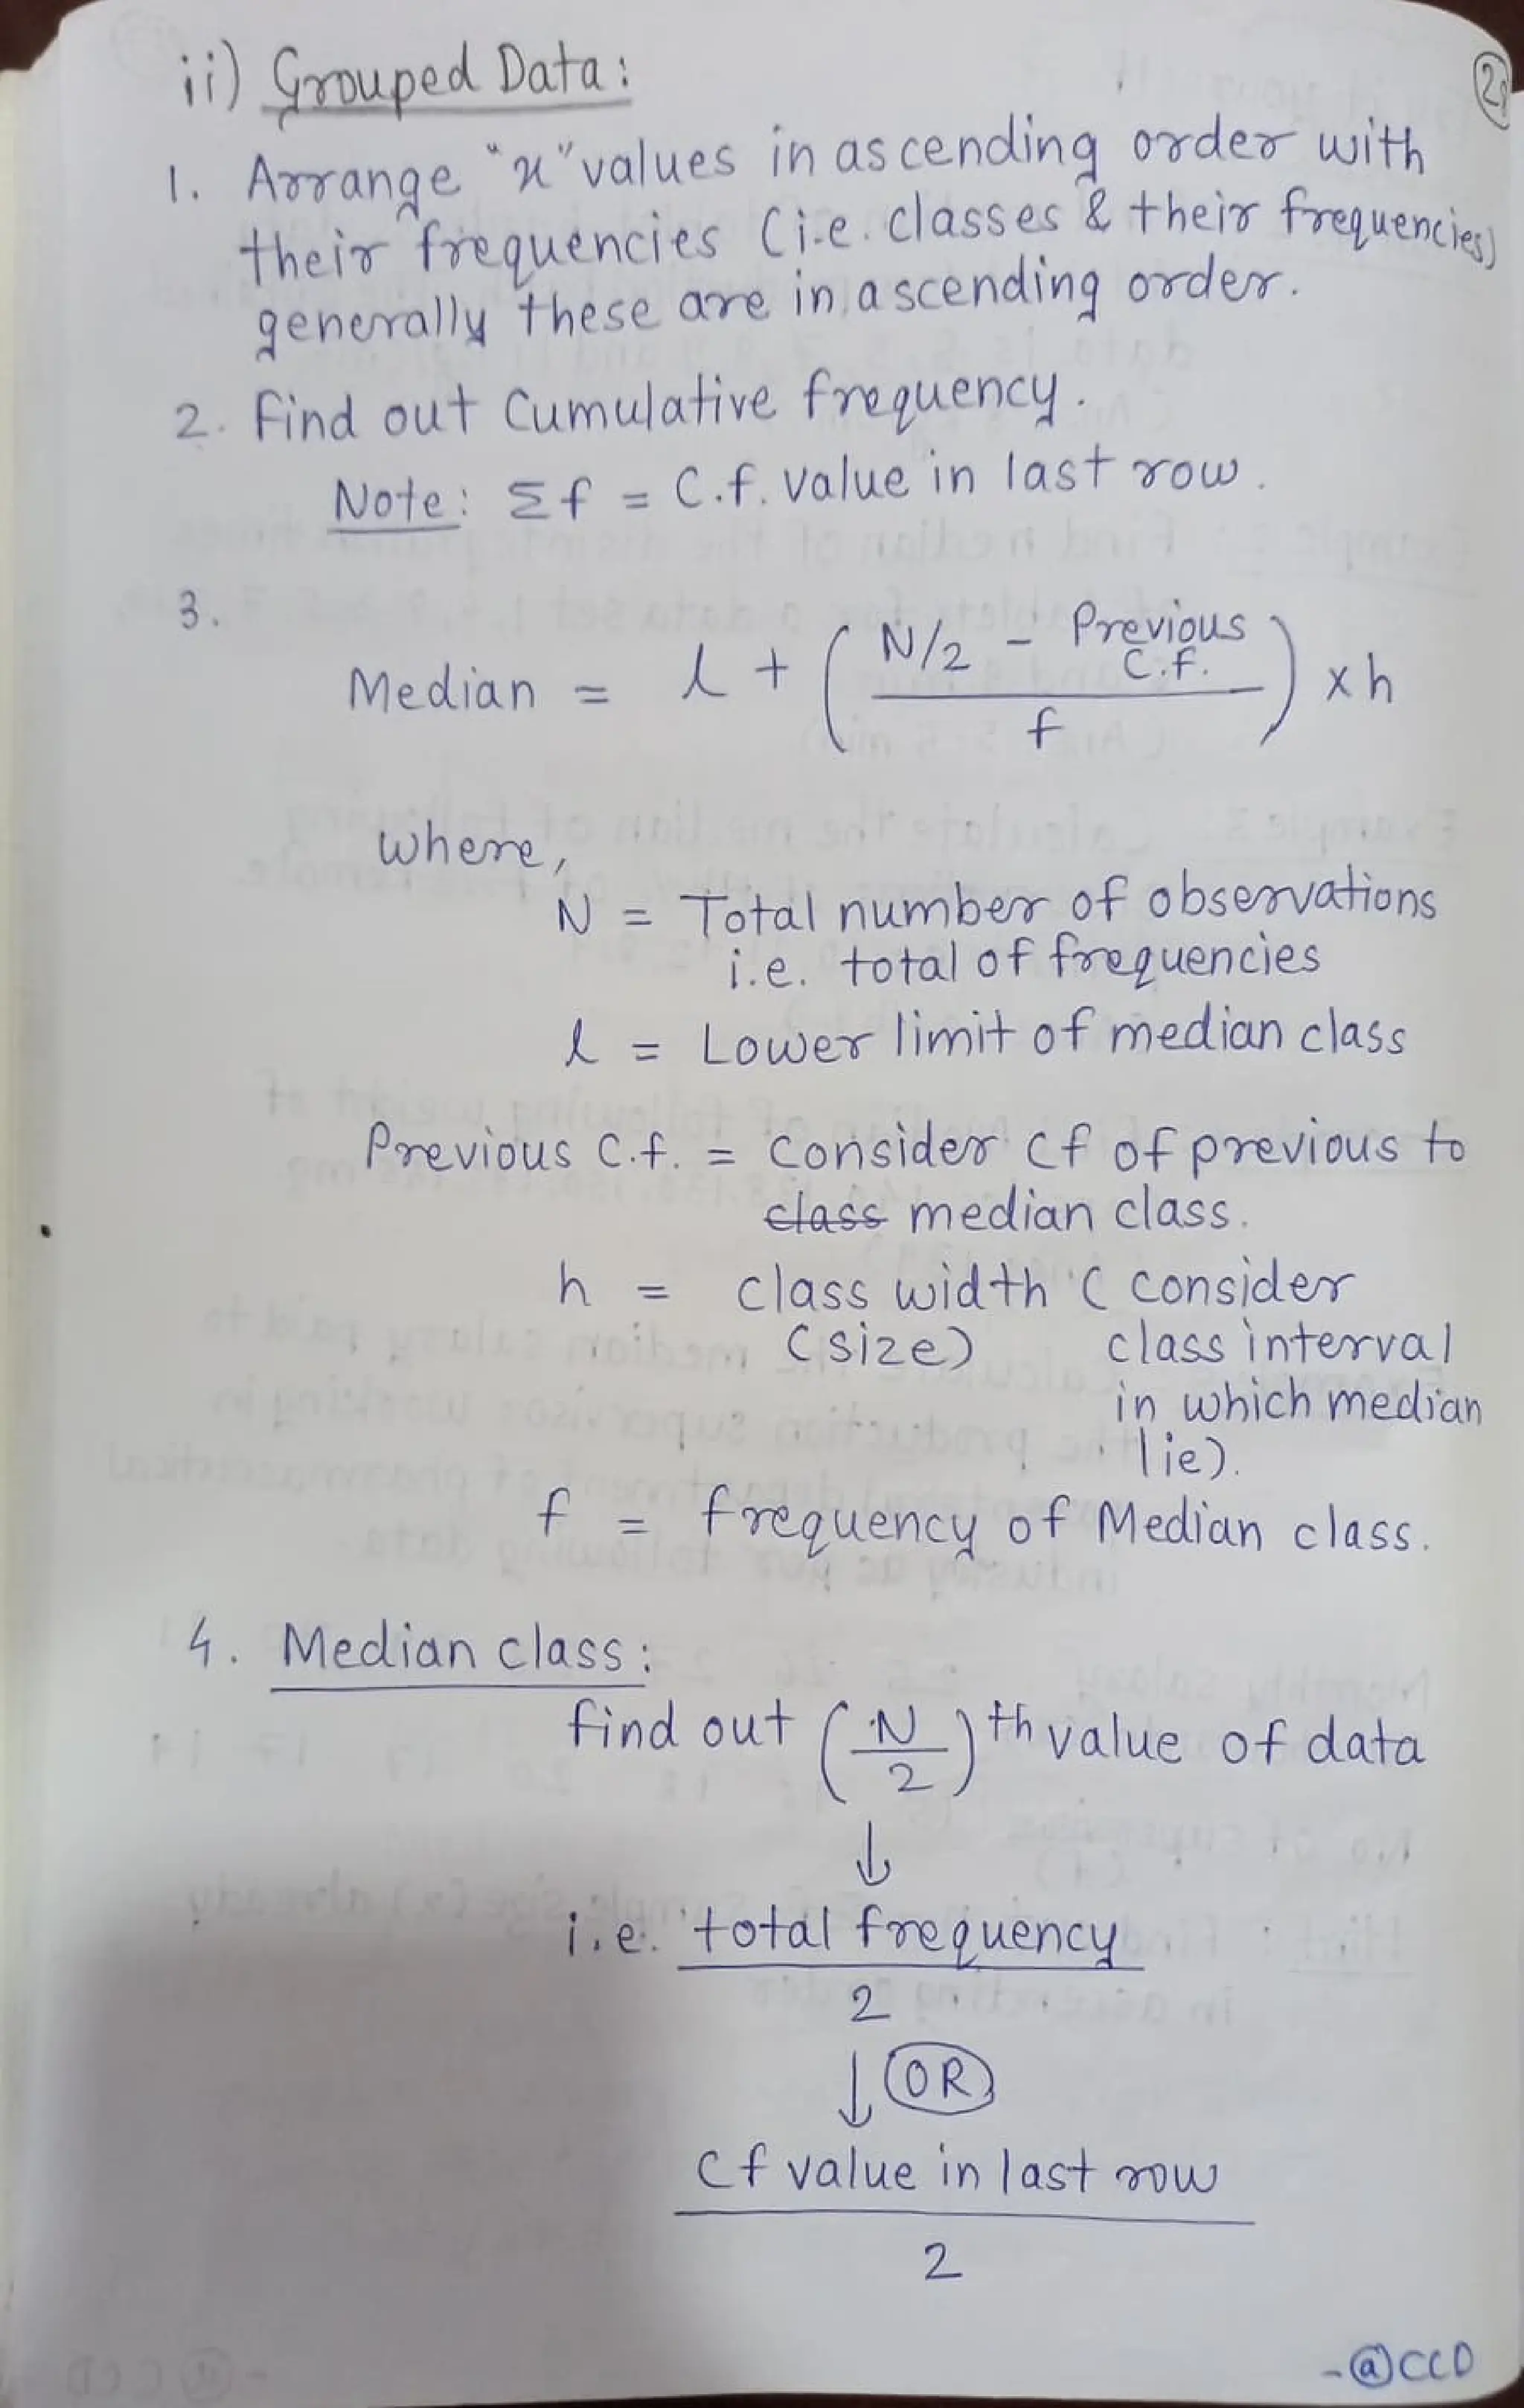 ii) Grouped Data:
1. Arrange "x" values in ascending order with
their frequencies (i.e. classes & their frequencies)
generally these are in ascending order.
2. Find out Cumulative frequency.
Note: Σf = C.f. value in last row.
3.
Median = l + ( N/2 - Previous C.f. / f ) x h
where,
N = Total number of observations
i.e. total of frequencies
l = Lower limit of median class
Previous C.f. = Consider Cf of previous to
class median class.
h = class width ( consider
(size) class interval
in which median
lie).
f = frequency of Median class.
4. Median class:
find out ( N / 2 ) th value of data
↓
i.e. total frequency
2
↓ OR
Cf value in last row
2
-@CCD